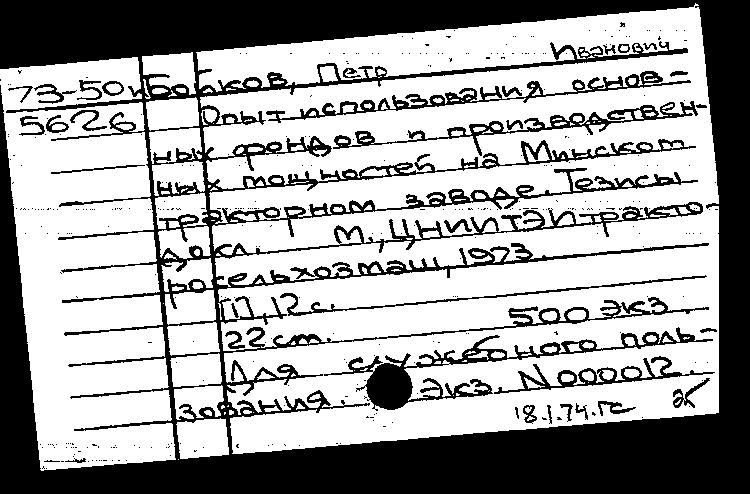 73-50п Бобков, Петр Иванович
5626 Опыт использования основ-
ных фондов и производствен-
ных мощностей на Минском
тракторном заводе. Тезисы
докл. М., ЦНИИТЭИтракто-
росельхозмаш, 1973.
12 с.
22 cm. 500 экз.
Для служебного поль-
зования. Экз. N 000012.
18.1.74.